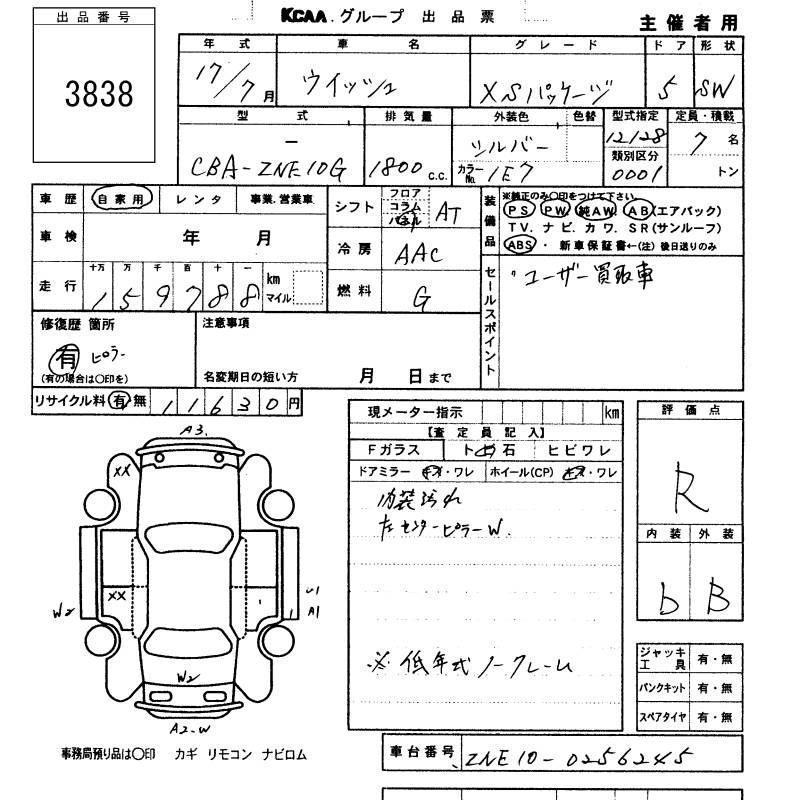 出品番号
3838
KCAA.グループ 出品票
主催者用
年式 車名 グレード ドア 形状
17/7月 ウイッシュ XSパッケージ 5 SW
型式 排気量 外装色 色替 型式指定 定員・積載
CBA-ZNE10G 1800c.c. シルバー カラーNo. 1E7 12128 7名
類別区分 0001 トン
車歴 自家用 レンタ 事業.営業車
シフト フロア コラム パネル AT
装備品 ※純正のみ○印をつけて下さい
PS PW 純AW AB(エアバック)
TV. ナビ. カワ. SR(サンルーフ)
ABS ・ 新車保証書←(注) 後日送りのみ
車検 年 月
冷房 AAC
走行 十万 万 千 百 十 一 km マイル
159788
燃料 G
セールスポイント
・ユーザー買取車
修復歴 箇所
有 ピラー
(有の場合は○印を)
注意事項
名変期日の短い方 月 日まで
リサイクル料 有 無 11630円
現メーター指示 km
【査定員記入】
Fガラス ト石 ヒビワレ
ドアミラー キズ・ワレ ホイール(CP) キズ・ワレ
内装汚れ
左センターピラーW.
※低年式ノークレーム
評価点
R
内装 外装
b B
ジャッキ工具 有・無
パンクキット 有・無
スペアタイヤ 有・無
A3.
XX
XX
W2
U1
A1
W2
A2.W
事務局預り品は○印 カギ リモコン ナビロム
車台番号 ZNE10-0256245